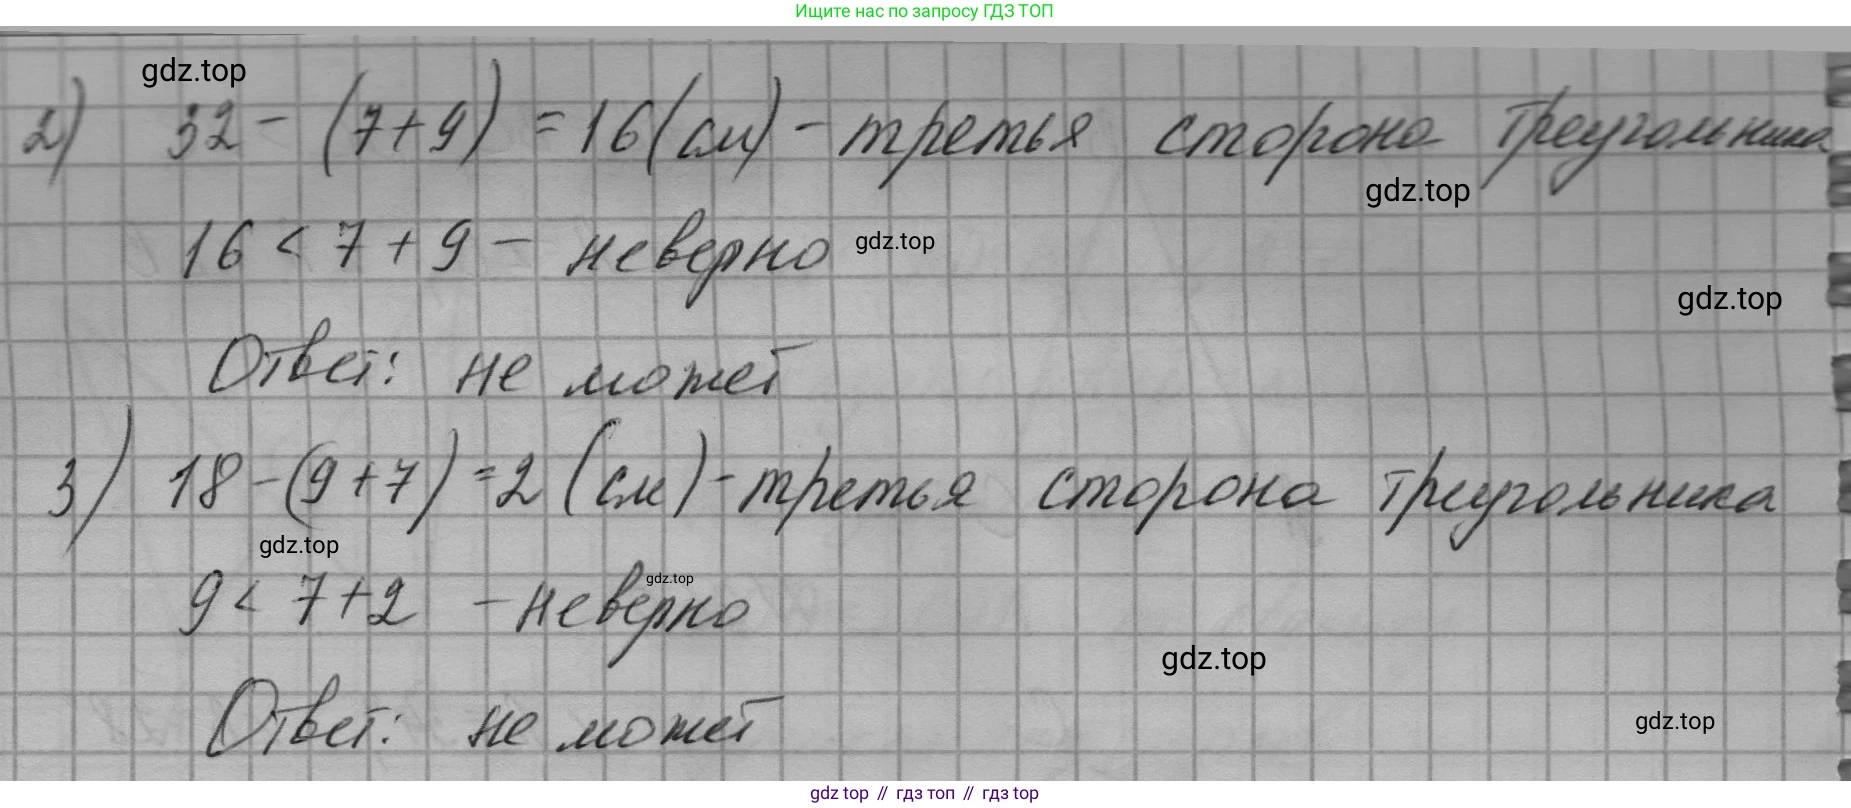 Ищите нас по запросу ГДЗ ТОП
gdz.top
2) 32 - (7+9) = 16 (см) - третья сторона треугольника
gdz.top
16 < 7 + 9 - неверно
gdz.top
gdz.top
Ответ: не может
3) 18 - (9+7) = 2 (см) - третья сторона треугольника
gdz.top
gdz.top
9 < 7+2 - неверно
gdz.top
Ответ: не может
gdz.top
gdz top // гдз топ // gdz top